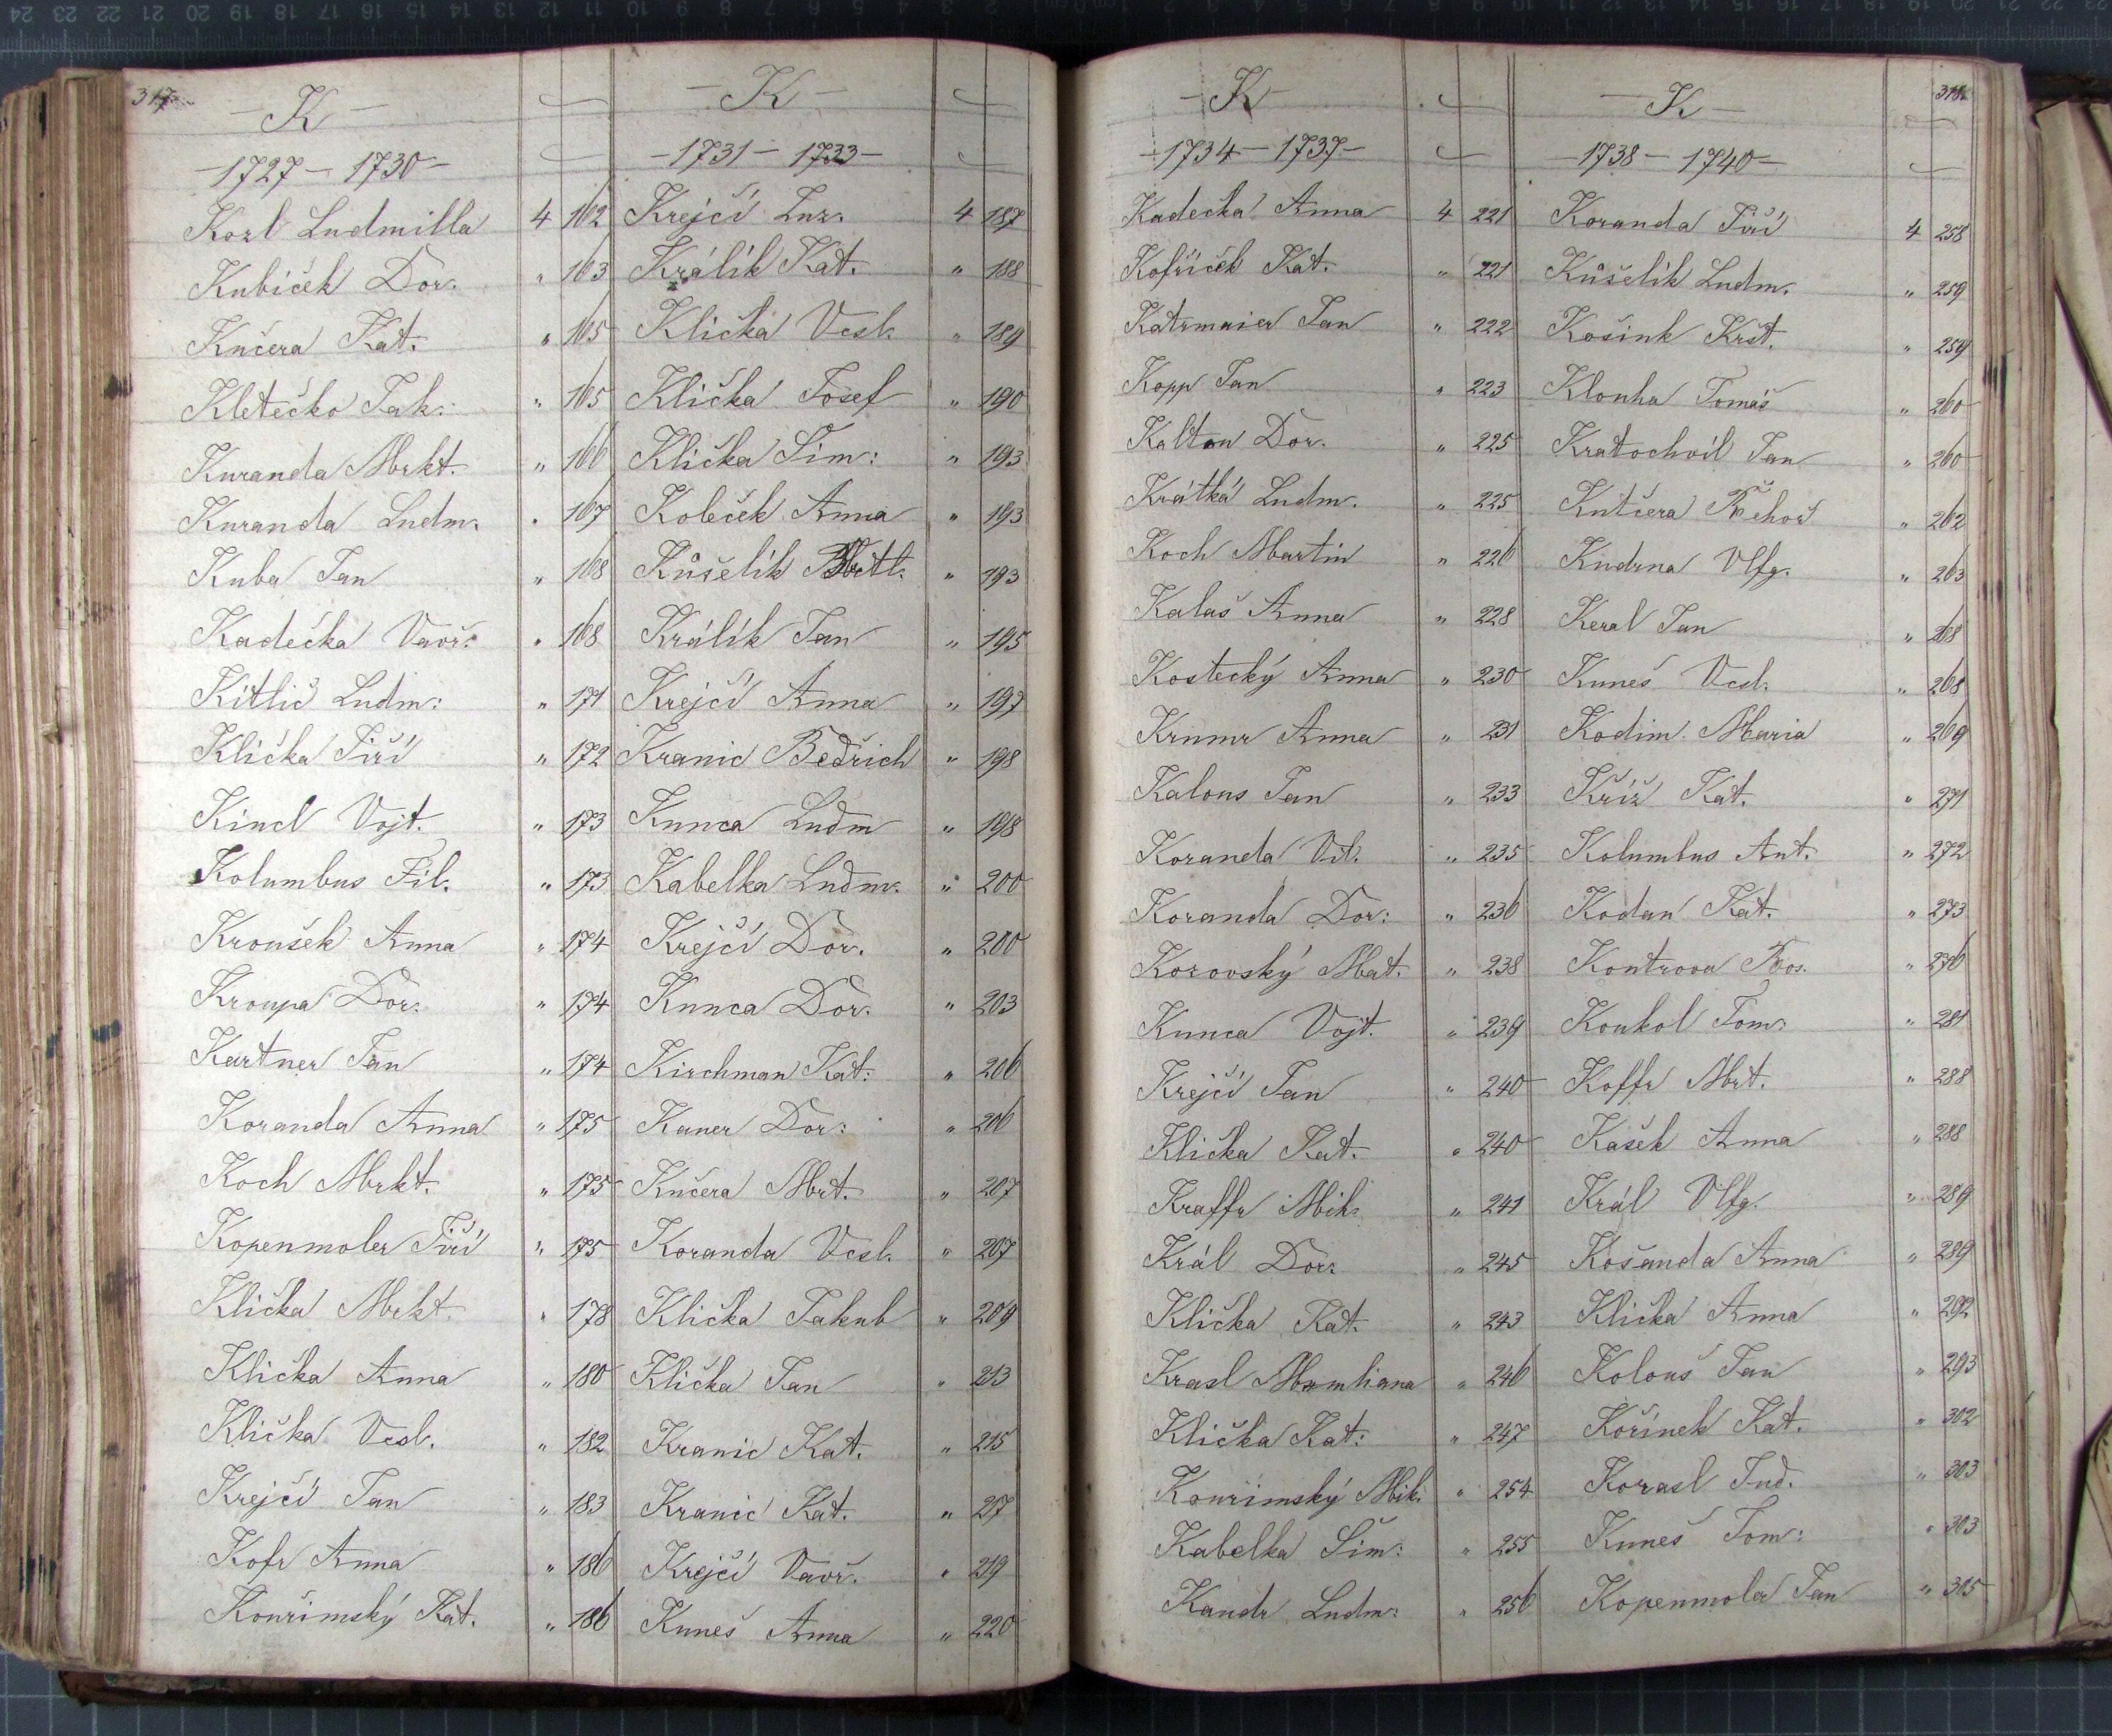 317.
— K —
— 1727 — 1730 —
Kozl Ludmilla 4 162
Kubíček Dor. " 163
Kučera Kat. " 165
Kletečko Jak: " 165
Kuranda Mrkt. " 166
Kuranda Ludm. " 167
Kuba Jan " 168
Kadečka Vavř. " 168
Kitlič Ludm: " 171
Klička Jiří " 172
Kincl Vojt. " 173
Kolumbus Fil. " 173
Kroušek Anna " 174
Kroupa Dor. " 174
Kartner Jan " 174
Koranda Anna " 175
Koch Mrkt. " 175
Kopenmoler Jiří " 175
Klička Mrkt. " 178
Klička Anna " 180
Klička Vcsl. " 182
Krejčí Jan " 183
Kofr Anna " 186
Kouřimský Kat. " 186
— K —
— 1731 — 1733 —
Krejčí Luz. 4 187
Králík Kat. " 188
Klička Vcsl. " 189
Klička Josef " 190
Klička Šim: " 193
Koleček Anna " 193
Kůšelík " 193
Králík Jan " 195
Krejčí Anna " 197
Kranic Bedřich " 198
Kunca Ludm " 198
Kabelka Ludm. " 200
Krejčí Dor. " 200
Kunca Dor. " 203
Kirchman Kat: " 206
Kaner Dor: " 206
Kučera Mrt. " 207
Koranda Vcsl. " 207
Klička Jakub " 209
Klička Jan " 213
Kranic Kat. " 215
Kranic Kat. " 217
Krejčí Vavř. " 219
Kuneš Anna " 220
— K —
— 1734 — 1737 —
Kadečka Anna 4 221
Kofříček Kat. " 221
Katzmaier Jan " 222
Kopp Jan " 223
Kalton Dor. " 225
Krátká Ludm. " 225
Koch Martin " 226
Kalaš Anna " 228
Kostecký Anna " 230
Krumr Anna " 231
Kalous Jan " 233
Koranda Vít. " 235
Koranda Dor: " 236
Kozovský Mat. " 238
Kunca Vojt. " 239
Krejčí Jan " 240
Klička Kat. " 240
Kraffr Mik. " 241
Král Dor. " 245
Klička Kat. " 243
Krasl " 246
Klička Kat: " 247
Kouřimský Mik. " 254
Kabelka Šim: " 255
Kandr Ludm: " 256
318.
— K —
— 1738 — 1740 —
Koranda Jiří 4 258
Kůšelík Ludm. " 259
Košink Kršt. " 259
Klouha Tomáš " 260
Kratochvíl Jan " 260
Kutčera Řehoř " 262
Kudrna Vlfg. " 263
Keral Jan " 268
Kuneš Vcsl. " 268
Kodim. Maria " 269
Kříž Kat. " 271
Kolumbus Ant. " 272
Kodan Kat. " 273
Kontrova Ros. " 276
Koukol Tom. " 281
Koffr Mrt. " 288
Kašek Anna " 288
Král Vlfg. " 289
Košanda Anna " 289
Klička Anna " 292
Kolouš Jan " 293
Kořínek Kat. " 302
Korasl Jud. " 303
Kuneš Tom: " 303
Kopenmoler Jan " 305